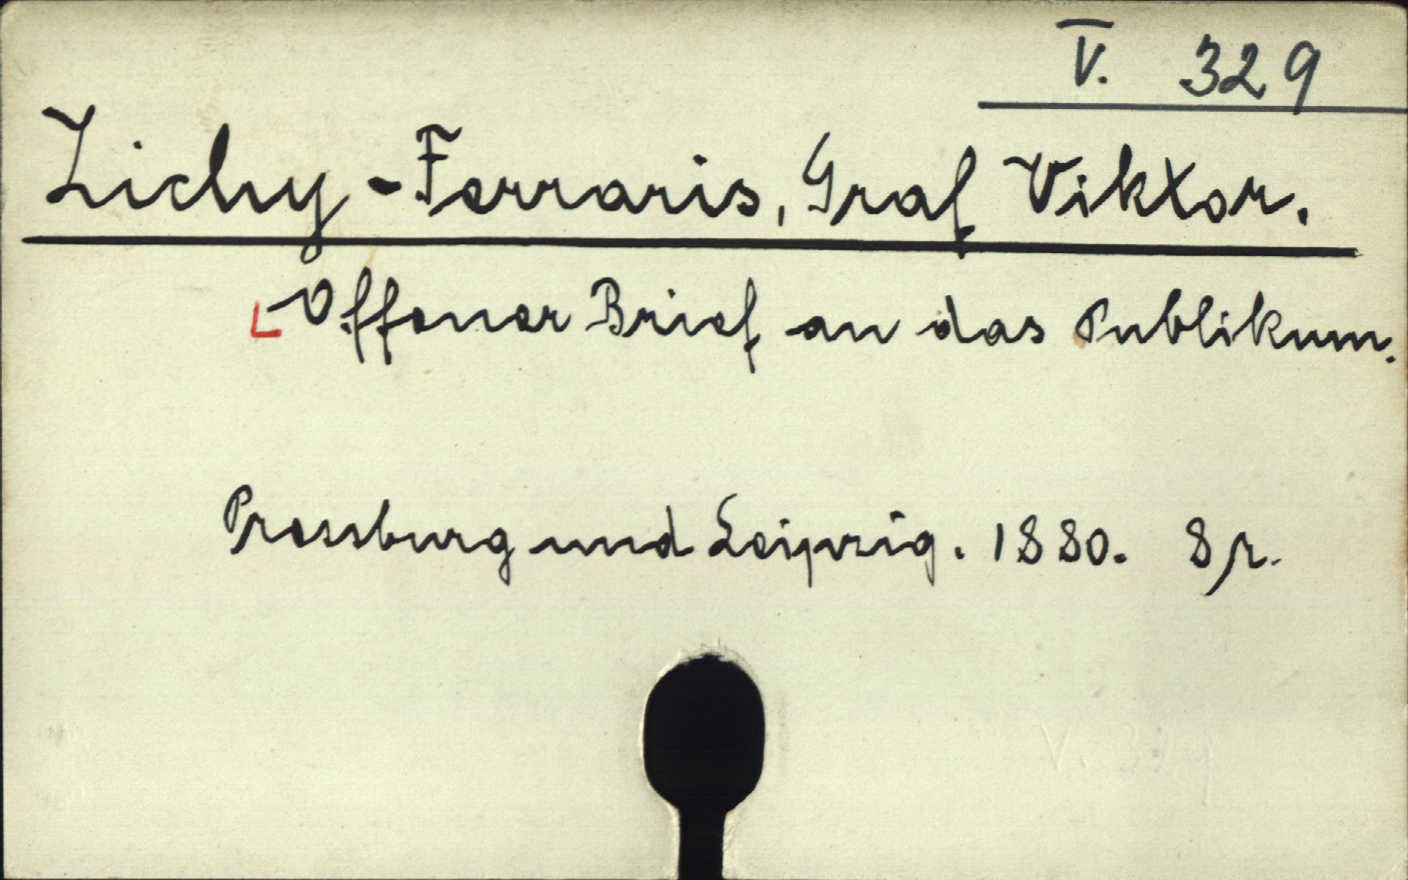 V. 329
Zichy-Ferraris, Graf Viktor.
Offener Brief an das Publikum.
Pressburg und Leipzig. 1880. 8 r.